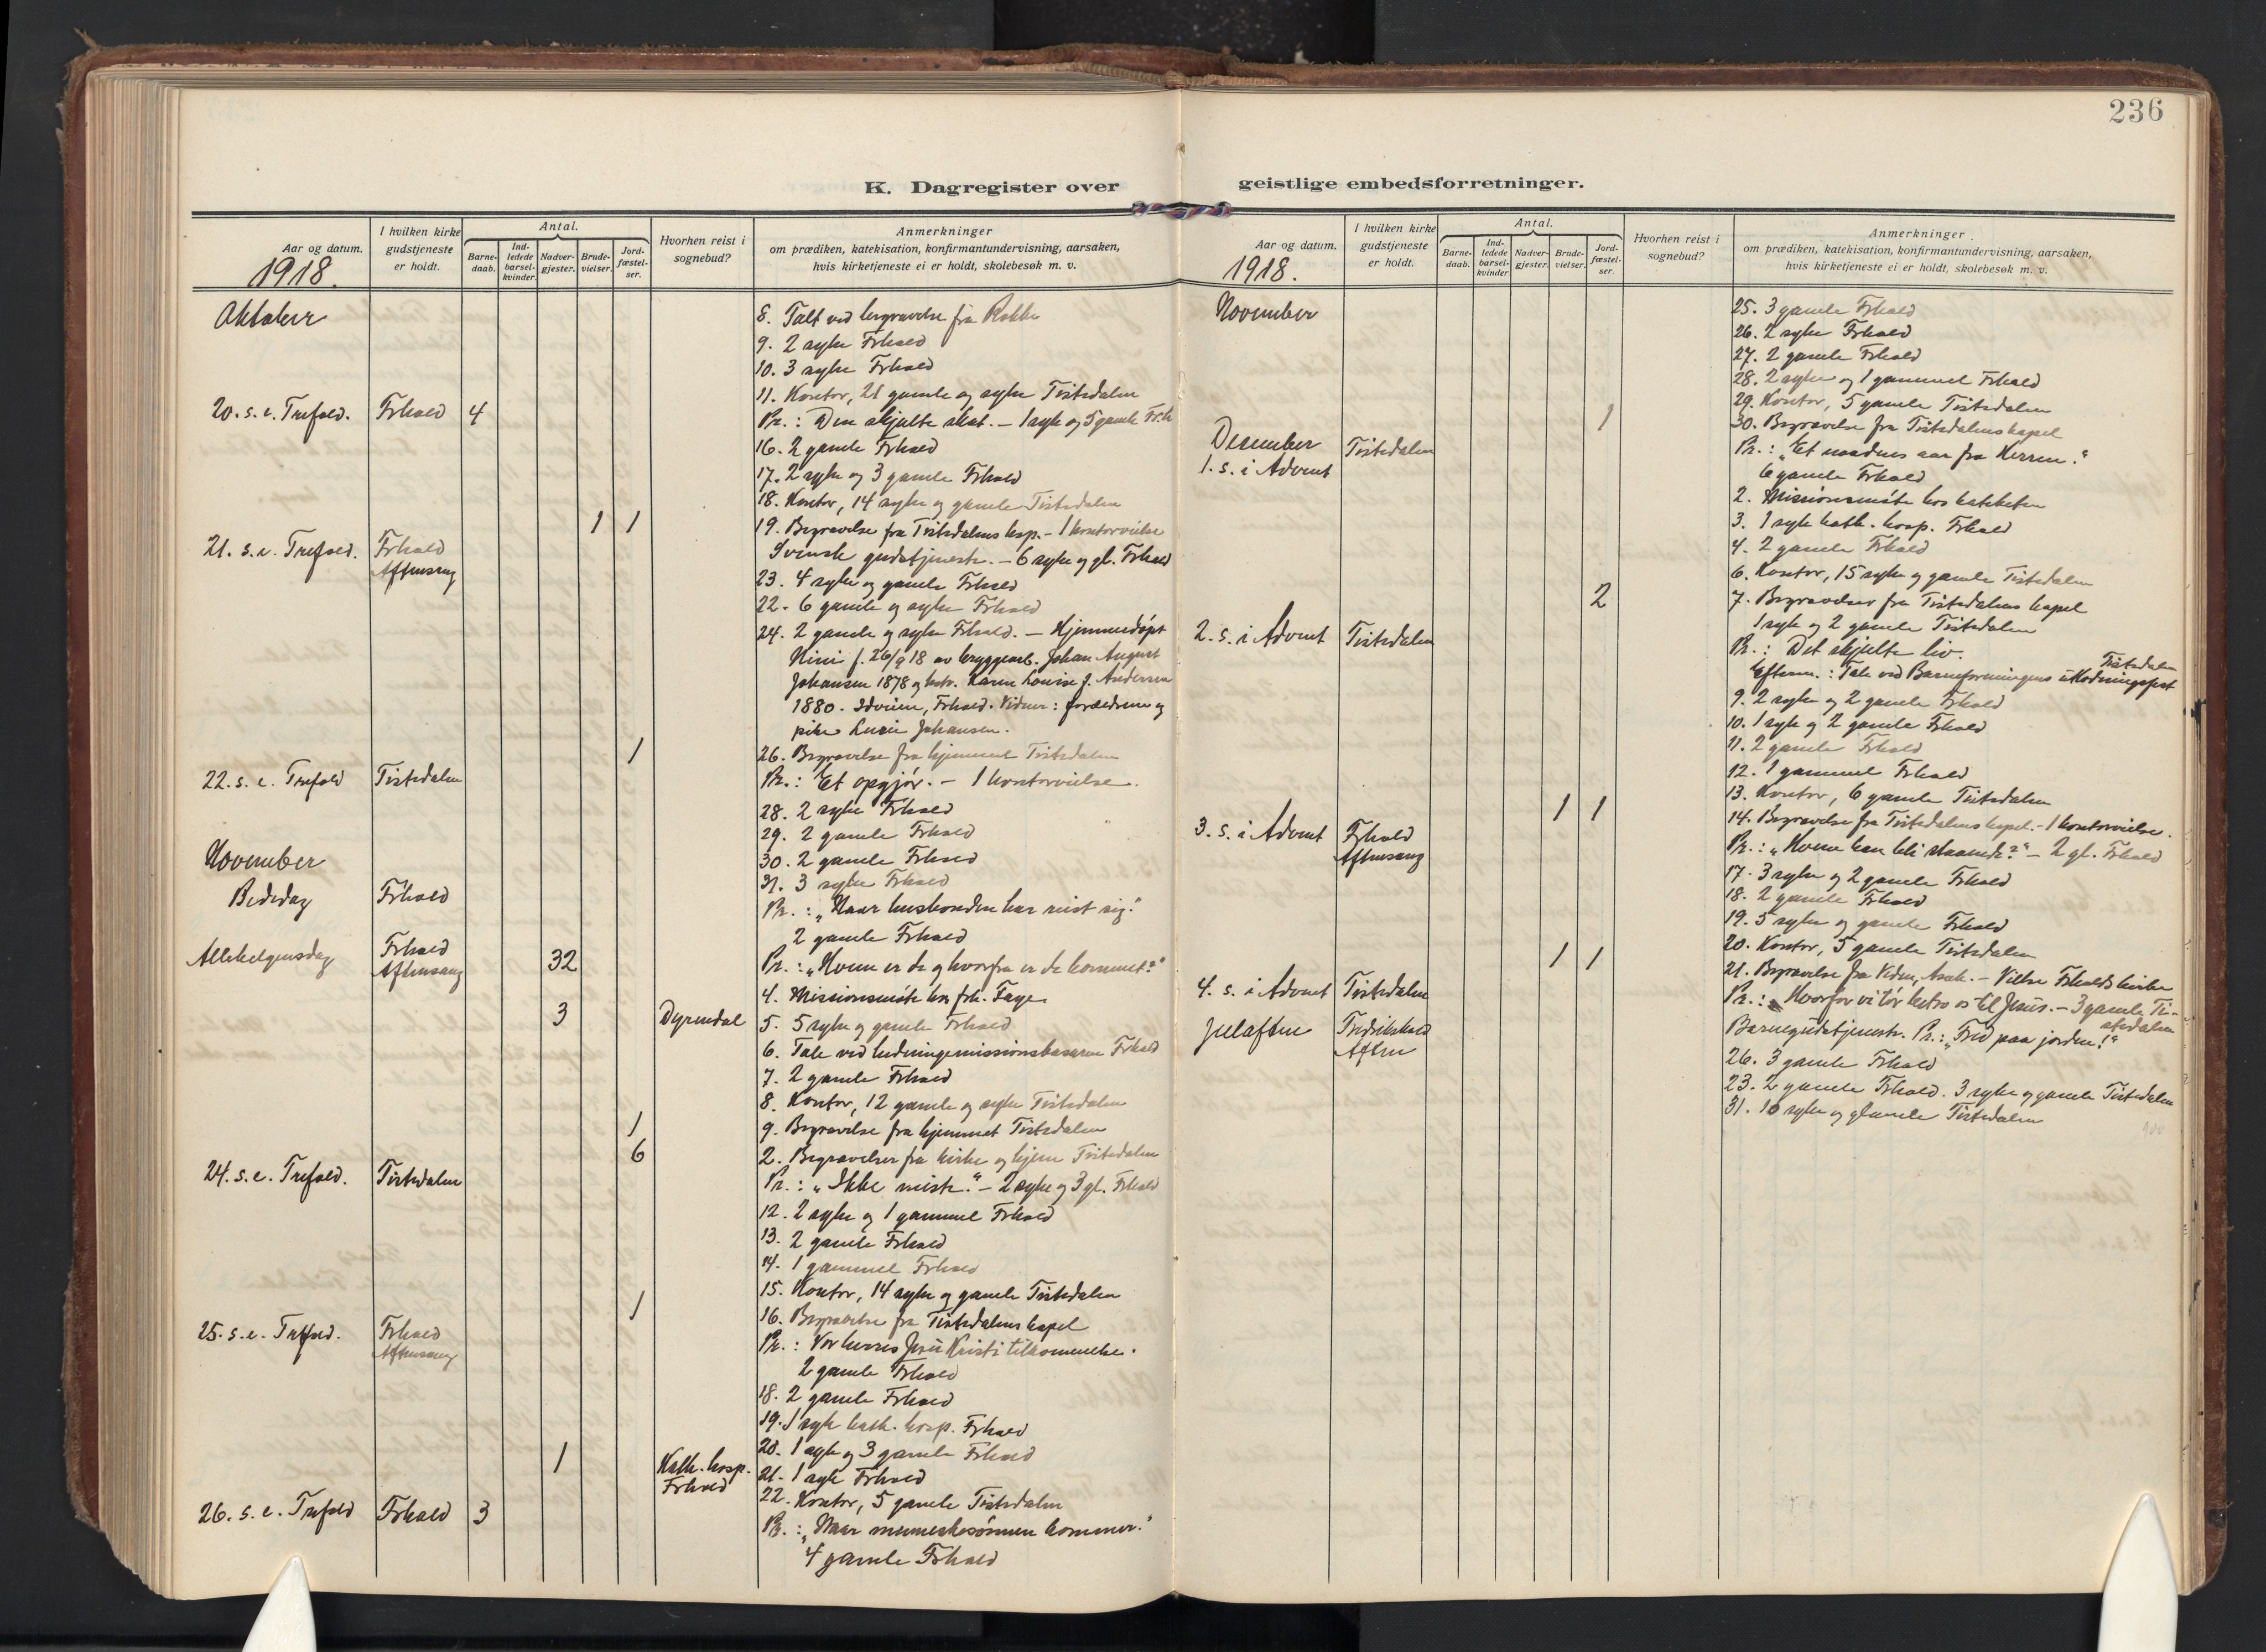 236
K. Dagregister over geistlige embedsforretninger.
Aar og datum.
1918.
I hvilken kirke gudstjeneste er holdt.
Antal.
Barne-daab.
Ind-ledede barsel-kvinder.
Nadver-gjester.
Brude-vielser.
Jord-fæstel-ser.
Hvorhen reist i sognebud?
Anmerkninger
om prædiken, katekisation, konfirmantundervisning, aarsaken,
hvis kirketjeneste ei er holdt, skolebesøk m. v.
Oktober
8. Talt ved begravelse fra Rokke
9. 2 syke Frhald
10. 3 syke Frhald
11. Kontor, 21 gamle og syke Tistedalen
20. s. e. Trefold. Frhald 4 Pr.: Den skjulte skat. - 1 syk og 5 gamle Fr.h
16. 2 gamle Frhald
17. 2 syke og 3 gamle Frhald
18. Kontor, 14 syke og gamle Tistedalen
1 1 19. Begravelse fra Tistedalens kap. - 1 kontorvielse
21. s. e. Trefold. Frhald Aftensang Svensk gudstjeneste. - 6 syke og gl. Frhald
23. 4 syke og gamle Frhald
22. 6 gamle og syke Frhald
24. 2 gamle og syke Frhald. - Hjemmedøpt
Nini f. 26/9 18 av bryggearb. Johan August
Johansen 1878 og hstr. Karen Louise f. Andersen
1880. Idveien, Frhald. Vidner: forældrene og
pike Lucie Johansen.
1 26. Begravelse fra hjemmet Tistedalen
22. s. e. Trefold Tistedalen Pr.: Et opgjør. - 1 kontorvielse.
28. 2 syke Frhald
29. 2 gamle Frhald
November
30. 2 gamle Frhald
31. 3 syke Frhald
Bededag Frhald Pr.: "Naar husbonden har reist sig."
2 gamle Frhald
Allehelgensdag Frhald Aftensang 32 Pr.: "Hvem er de og hvorfra er de kommet?"
4. Missionsmøte hos frk. Faye
3 Dyrendal 5. 5 syke og gamle Frhald
6. Tale ved hedningemissionsbasaren Frhald
7. 2 gamle Frhald
8. Kontor, 12 gamle og syke Tistedalen
1 9. Begravelse fra hjemmet Tistedalen
6 2. Begravelser fra kirke og hjem Tistedalen
24. s. e. Trefold. Tistedalen Pr.: "Ikke miste." - 2 syke og 3 gl. Frhald
12. 2 syke og 1 gammel Frhald
13. 2 gamle Frhald
14. 1 gammel Frhald
15. Kontor, 14 syke og gamle Tistedalen
1 16. Begravelse fra Tistedalens kapel
25. s. e. Trefold. Frhald Aftensang Pr.: Vor herres Jesu Kristi tilkommelse.
2 gamle Frhald
18. 2 gamle Frhald
19. 1 syk kath. hosp. Frhald
20. 1 syk og 3 gamle Frhald
1 Kath. hosp. Frhald 21. 1 syk Frhald
22. Kontor, 5 gamle Tistedalen
26. s. e. Trefold Frhald 3 Pr.: "Naar menneskesønnen kommer."
4 gamle Frhald
Aar og datum.
1918.
I hvilken kirke gudstjeneste er holdt.
Antal.
Barne-daab.
Ind-ledede barsel-kvinder
Nadver-gjester.
Brude-vielser.
Jord-fæstel-ser.
Hvorhen reist i sognebud?
Anmerkninger
om prædiken, katekisation, konfirmantundervisning, aarsaken,
hvis kirketjeneste ei er holdt, skolebesøk m. v.
November
25. 3 gamle Frhald
26. 2 syke Frhald
27. 2 gamle Frhald
28. 2 syke og 1 gammel Frhald
29. Kontor, 5 gamle Tistedalen
1 30. Begravelse fra Tistedalens kapel
December
1. s. i Advent Tistedalen Pr.: "Et naadens aar fra Herren."
6 gamle Frhald
2. Missionsmøte hos kateketen
3. 1 syk kath. hosp. Frhald
4. 2 gamle Frhald
6. Kontor, 15 syke og gamle Tistedalen
2 7. Begravelser fra Tistedalens kapel
1 syk og 2 gamle Tistedalen
2. s. i Advent Tistedalen Pr.: Det skjulte liv.
Efterm.: Tale ved Barneforeningens utlodningsfest Tistedalen
9. 2 syke og 2 gamle Frhald
10. 1 syk og 2 gamle Frhald
11. 2 gamle Frhald
12. 1 gammel Frhald
13. Kontor, 6 gamle Tistedalen
1 1 14. Begravelse fra Tistedalens kapel. - 1 kontorvielse.
3. s. i Advent Frhald Aftensang Pr.: "Hvem kan bli staaende?" - 2 gl. Frhald
17. 3 syke og 2 gamle Frhald
18. 2 gamle Frhald
19. 5 syke og gamle Frhald
20. Kontor, 5 gamle Tistedalen
1 1 21. Begravelse fra Veden, Asak. - Vielse Frhalds kirke
4. s. i Advent Tistedalen Pr.: Hvorfor vi tør betro os til Jesus. - 3 gamle Ti-
stedalen
Julaften Fredrikshald Aften Barnegudstjeneste. Pr.: "Fred paa jorden!"
26. 3 gamle Frhald
23. 2 gamle Frhald. 3 syke og gamle Tistedalen
31. 10 syke og gamle Tistedalen